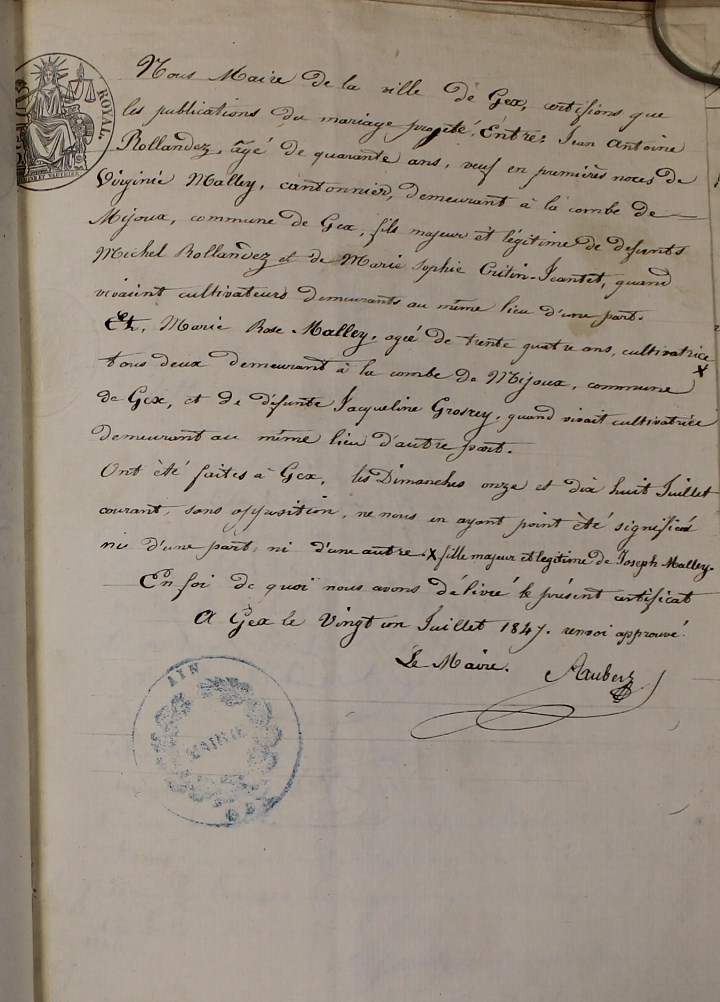 ROYAL.
Nous Maire de la ville de Gex, certifions que
les publications du mariage projeté. Entre: Jean Antoine
Rollandez, âgé de quarante ans, veuf en premières noces de
Virginie Malley, cantonnier, demeurant à la combe de
Mijoux, commune de Gex, fils majeur et légitime de defunts
Michel Rollandez et de Marie Sophie Critin-Jeantet, quand
vivaient cultivateurs demeurants au même lieu d'une part.
Et, Marie Rose Malley, ageé de trente quatre ans, cultivatrice X
tous deux demeurant à la combe de Mijoux, commune
de Gex, et de défunte Jacqueline Grosrey, quand vivait cultivatrice
demeurant au même lieu d'autre part.
Ont été faites à Gex, les Dimanches onze et dix huit Juillet
courant, sans opposition, ne nous en ayant point été signifiés
ni d'une part, ni d'une autre. X fille majeur et legitime de Joseph Malley.
En foi de quoi nous avons délivré le présent certificat
A Gex le Vingt un Juillet 1847. renvoi approuvé.
Le Maire.
AIN
MAIRIE
GEX